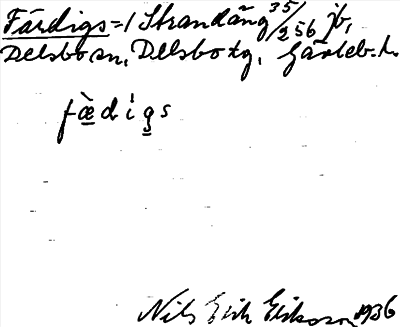 Färdigs = 1 Strandäng 35/256 jb,
Delsbo sn, Delsbo tg, Gävleb. l.
fæ̀di̍gs
Nils Erik Eriksson 1936